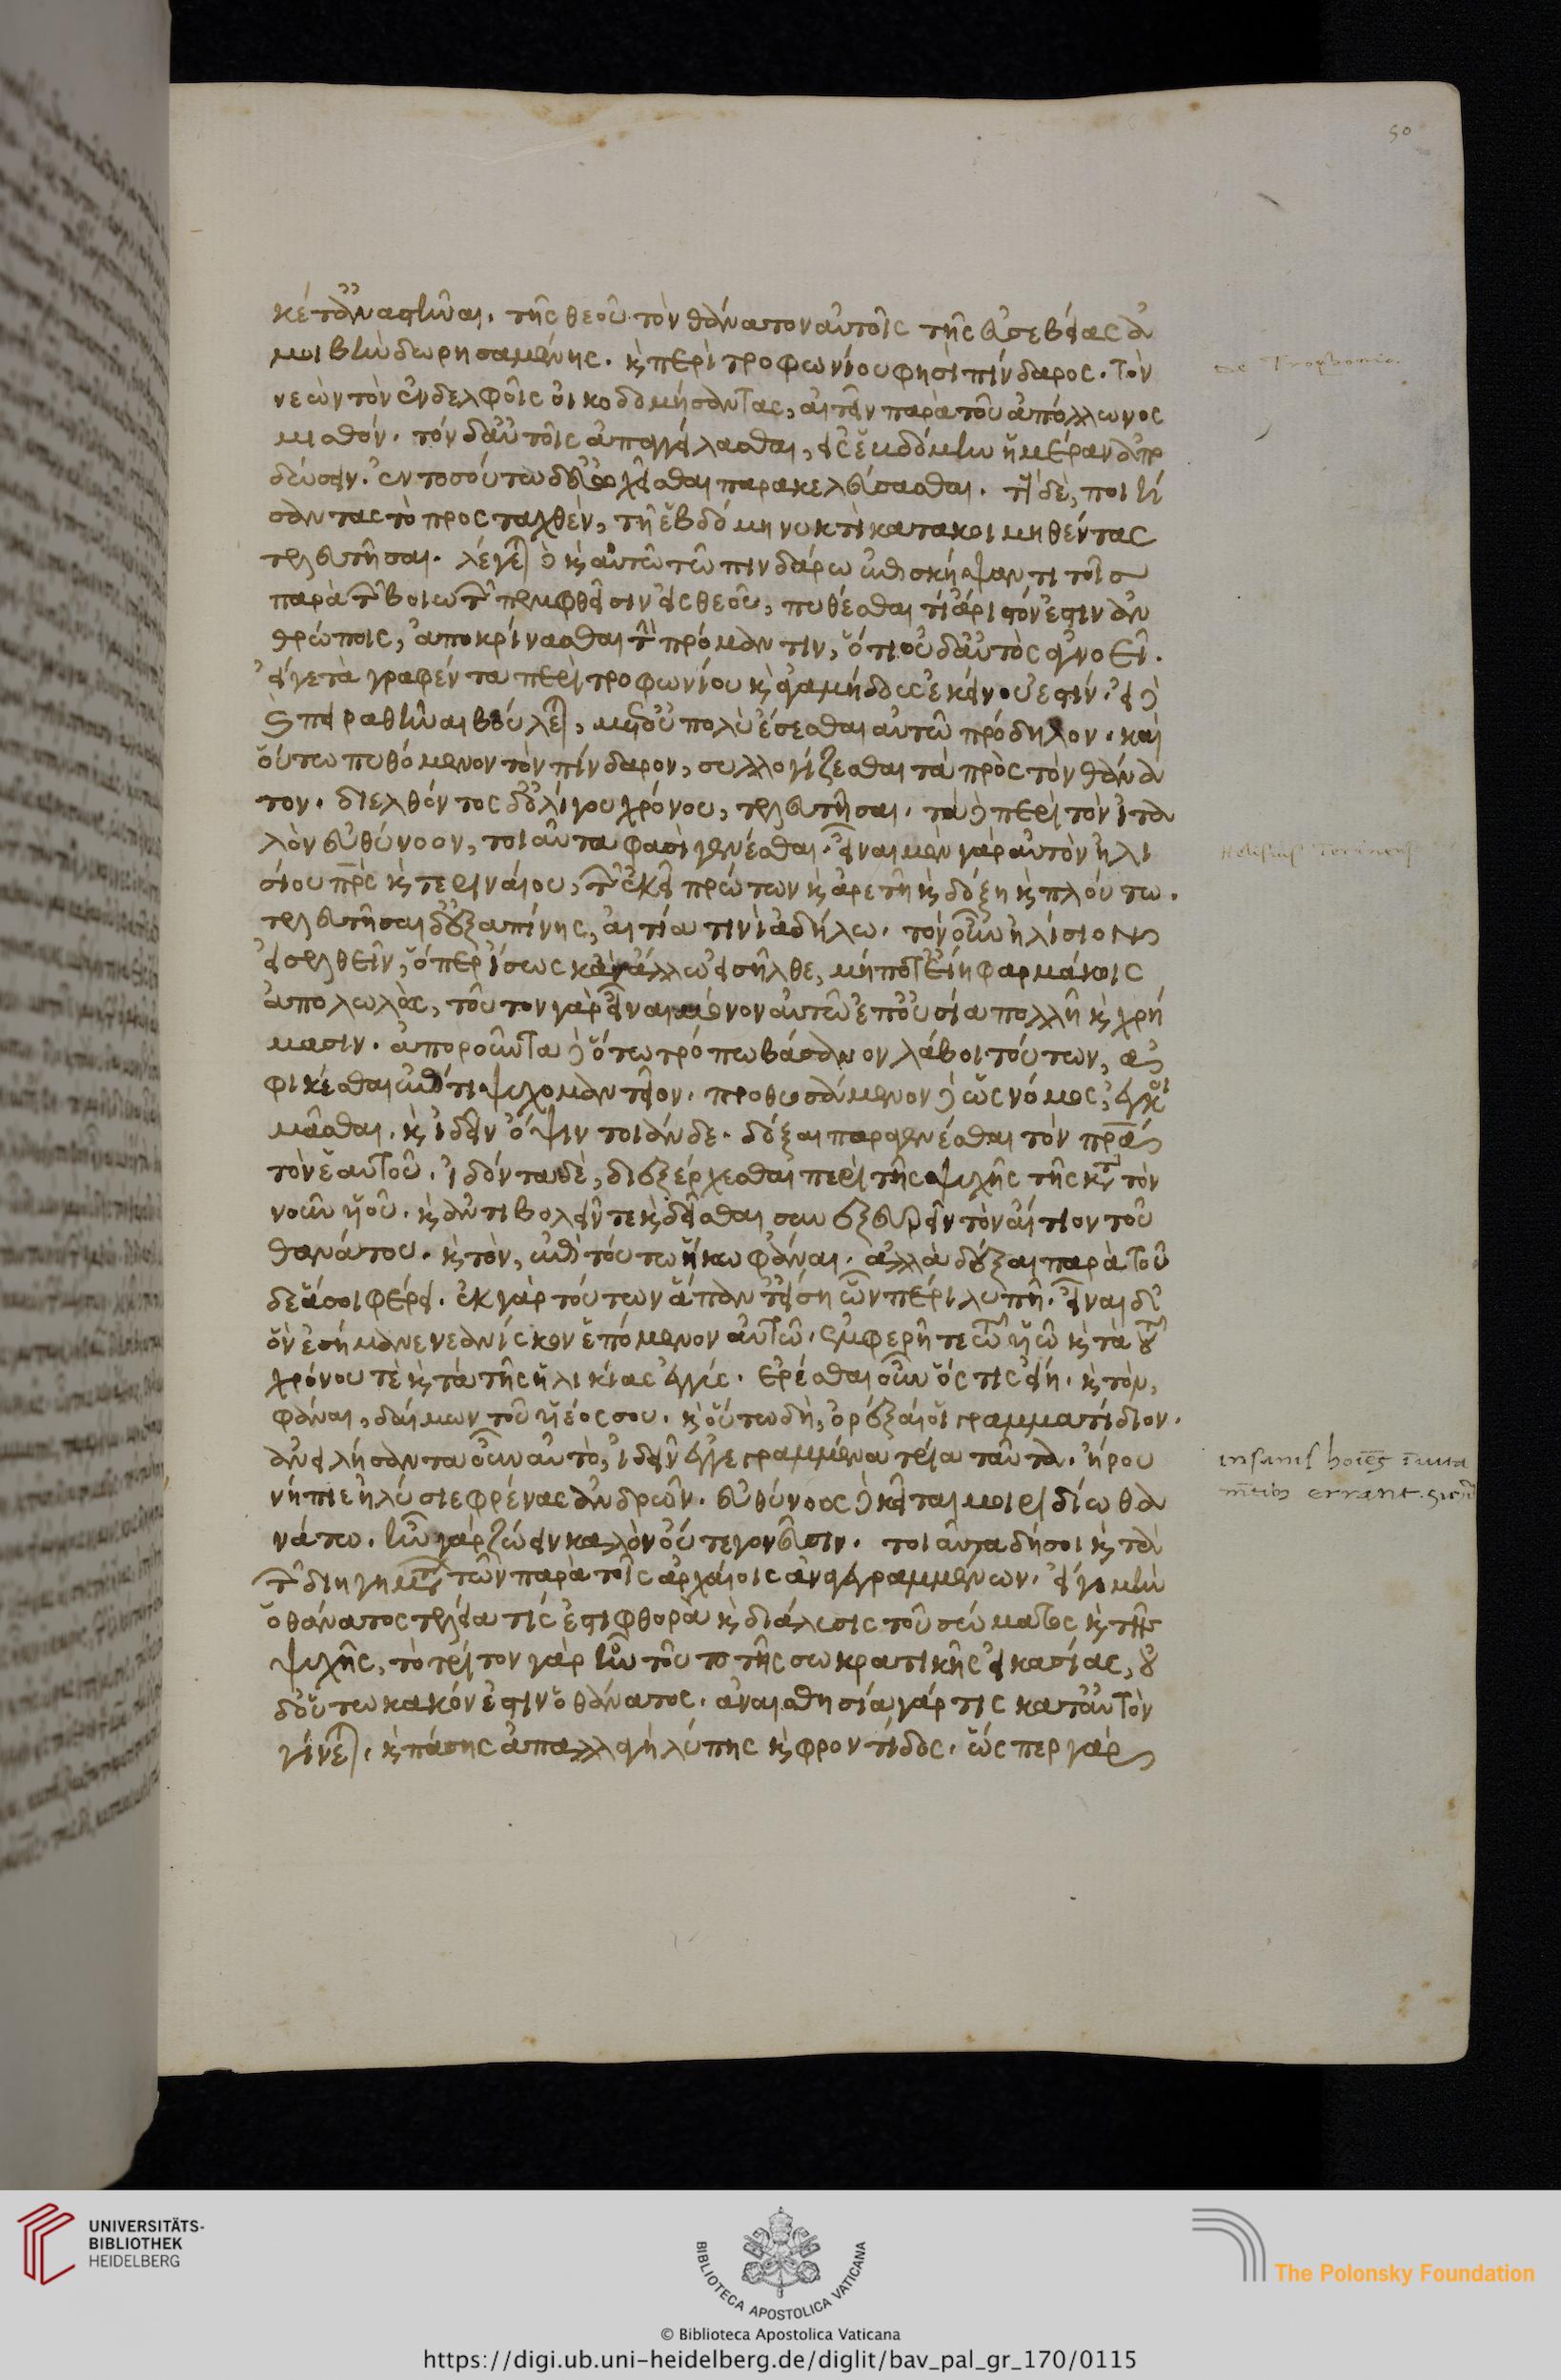 50
κέτ' ἀναστῆναι. τῆς θεοῦ τὸν θάνατον αὐτοῖς τῆς εὐσεβείας ἀ
μοιβὴν δωρησαμένης. ϗ περὶ τροφωνίου φησὶ πίνδαρος. τὸν
νεὼν τὸν ἐν δελφοῖς οἰκοδομήσαντας, αἰτεῖν παρὰ τοῦ ἀπόλλωνος
μισθόν. τόν δ' αὐτοῖς ἀπαγγείλασθαι, εἰς ἑβδόμην ἡμέραν ἀπο
δώσειν. ἐν τοσούτω δ' εὐωχεῖσθαι παρακελεύσασθαι. τῇ δὲ, ποιή
σαντας τὸ προσταχθὲν, τῇ ἑβδόμη νυκτὶ κατακοιμηθέντας
τελευτῆσαι. λέγεται δὲ ϗ αὐτῶ τῶ πινδάρω ἐπισκήψαντι τοῖς
παρὰ τῶν βοιωτῶν πεμφθεῖσιν εἰς θεοῦ, πυθέσθαι τί ἄριστόν ἐστιν ἀν
θρώποις, ἀποκρίνασθαι τὴν πρόμαντιν, ὅτι οὐδ' αὐτὸς ἀγνοεῖ.
εἴγε τὰ γραφέντα περὶ τροφωνίου ϗ ἀγαμήδους ἐκείνου ἐστίν. εἰ δὲ
ϗ πειραθῆναι βούλεται, μετ' οὐ πολὺ ἔσεσθαι αὐτῶ πρόδηλον. καὶ
οὕτω πυθόμενον τὸν πίνδαρον, συλλογίζεσθαι τὰ πρὸς τὸν θάνα
τον. διελθόντος δ' ὀλίγου χρόνου, τελευτῆσαι. τὰ δὲ περὶ τὸν ἰτα
λὸν εὐθύνοον, τοιαῦτα φασὶ γενέσθαι. εἶναι μὲν γὰρ αὐτὸν ἠλι
σίου πρς ϗ τεριναίου, τῶν ἐκεῖ πρώτων ϗ ἀρετῆ ϗ δόξη ϗ πλούτω.
τελευτῆσαι δ' ἐξαπίνης, αἰτία τινὶ ἀδήλω. τὸν οὖν ἠλίσιον
εἰσελθεῖν, ὅπερ ἴσως κἀν ἄλλω εἰσῆλθε, μήποτ' εἴη φαρμάκοις
ἀπολωλὼς, τοῦτον γὰρ εἶναι μόνον αὐτῶ ἐπ' οὐσία πολλῆ ϗ χρή
μασιν. ἀποροῦντα δὲ ὅτω τρόπω βάσανον λάβοι τούτων, ἀ
φικέσθαι ἐπί τι ψυχομαντεῖον. προθυσάμενον δὲ ὡς νόμος, ἐγκοι
μᾶσθαι. ϗ ἰδεῖν ὄψιν τοιάνδε. δόξαι παραγενέσθαι τὸν πρα
τὸν ἑαυτοῦ. ἰδόντα δὲ, διεξέρχεσθαι περὶ τῆς ψυχῆς τῆς κατὰ τὸν
νοῦν ὑοῦ. ϗ ἀντιβολεῖν τε ϗ δεῖσθαι συνεξευρεῖν τὸν αἴτιον τοῦ
θανάτου. ϗ τὸν, ἐπὶ τούτω ἥκω φάναι. ἀλλὰ δέξαι παρὰ τοῦ
δε ἅ σοι φέρει. ἐκ γὰρ τούτων ἅπαντ' εἴση ὧν πέρι λυπῆ. εἶναι δ'
ὃν ἐσήμανε νεανίσκον ἑπόμενον αὐτῶ. ἐμφερῆ τε τῶ ὑῶ ϗ τὰ τοῦ
χρόνου τὲ ϗ τὰ τῆς ἡλικίας ἐγγύς. ἐρέσθαι οὖν ὅς τις εἴη. ϗ τὸν,
φάναι, δαίμων τοῦ ὑέος σου. ϗ οὕτω δὴ, ὀρέξαί οἱ γραμματίδιον.
ἀνειλήσαντα οὖν αὐτὸ, ἰδεῖν ἐγγεγραμμένα τρία ταῦτα. ἤρου
νήπιε ἠλύσιε φρένας ἀνδρῶν. εὐθύνοος δὲ κεῖται μοιριδίω θα
νάτω. ἦν γὰρ ζώειν καλὸν οὔτε γονεῦσιν. τοιαῦτα δή σοι ϗ τὰ
τῶν διηγημάτων τῶν παρὰ τοῖς ἀρχαίοις ἀναγεγραμμένων. εἴγε μὴν
ὁ θάνατος τελεία τίς ἐστι φθορὰ ϗ διάλυσις τοῦ σώματος ϗ τῆς
ψυχῆς, τὸ τρίτον γὰρ ἦν τοῦτο τῆς σωκρατικῆς εἰκασίας, οὐ
δ' οὕτω κακόν ἐστιν ὁ θάνατος. ἀναισθησία γάρ τις κατ' αὐτὸν
γίνεται. ϗ πάσης ἀπαλλαγὴ λύπης ϗ φροντίδος. ὥσπερ γὰρ
de Trophonio.
insanis hoiēs
errant.
UNIVERSITÄTS-
BIBLIOTHEK
HEIDELBERG
BIBLIOTECA APOSTOLICA VATICANA
The Polonsky Foundation
© Biblioteca Apostolica Vaticana
https://digi.ub.uni-heidelberg.de/diglit/bav_pal_gr_170/0115